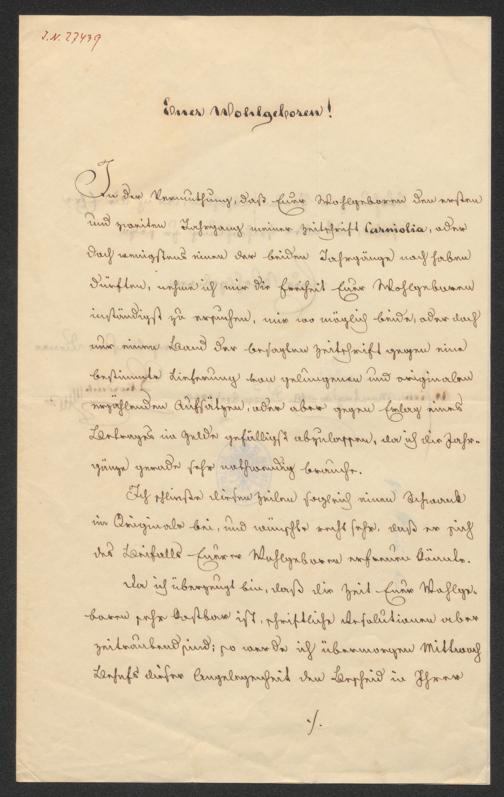 J.N. 27439
Euer Wohlgeboren!
In der Vermuthung, daß Euer Wohlgeboren den ersten
und zweiten Jahrgang meiner Zeitschrift Carniolia, oder
doch wenigstens einen der beiden Jahrgänge noch haben
dürften, nehme ich mir die Freiheit Euer Wohlgeboren
inständigst zu ersuchen, mir wo möglich beide, oder doch
nur einen Band der besagten Zeitschrift gegen eine
bestimmte Lieferung von gelungenen und originalen
erzählenden Aufsätzen, oder aber gegen Erlag eines
Betrages in Gelde gefälligst abzulassen, da ich die Jahr-
gänge gerade sehr nothwendig brauche.
Ich schließe diesen Zeilen sogleich einen Schwank
im Originale bei, und wünschte recht sehr, daß er sich
des Beifalls Euerer Wohlgeboren erfreuen könnte.
Da ich überzeugt bin, daß die Zeit Euer Wohlge-
boren sehr kostbar ist, schriftliche Resolutionen aber
zeitraubend sind; so werde ich übermorgen Mittwoch
Behufs dieser Angelegenheit den Bescheid in Ihrer
./.